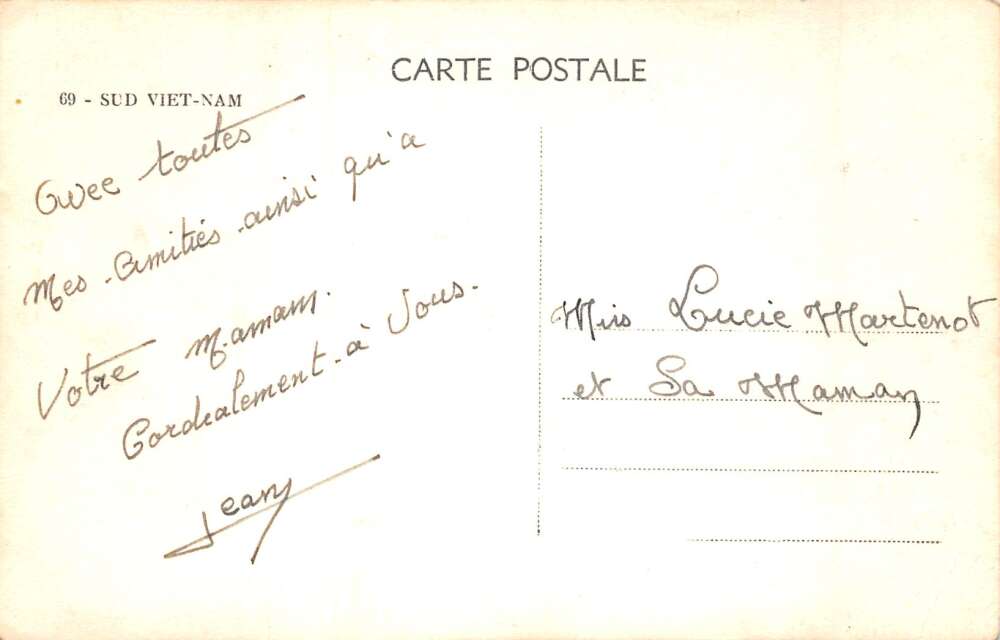 CARTE POSTALE
69 - SUD VIET-NAM
Avec toutes
Mes Amitiés ainsi qu'a
Votre Maman.
Cordialement à Vous.
Jean
Miss Lucie Martenot
et Sa Maman